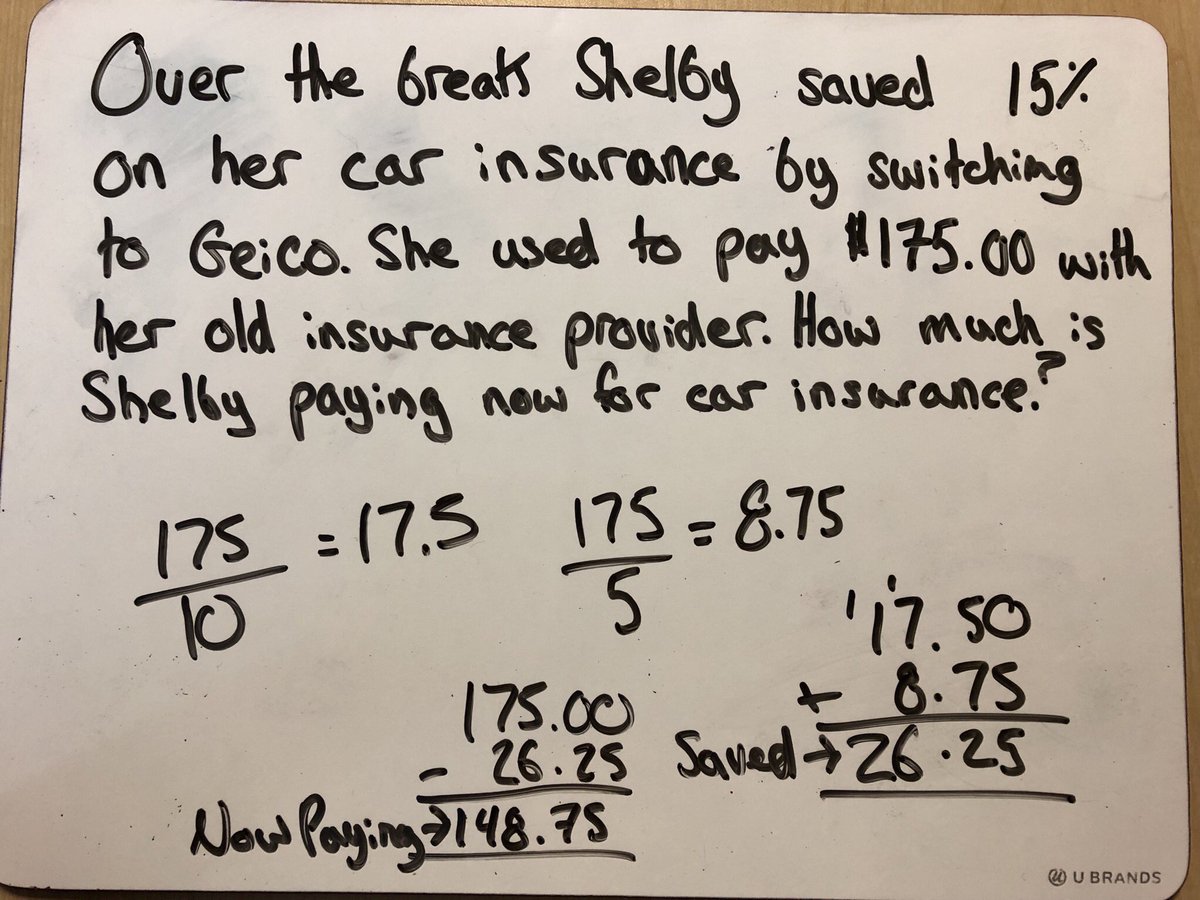 Over the break Shelby saved 15%
on her car insurance by switching
to Geico. She used to pay $175.00 with
her old insurance provider. How much is
Shelby paying now for car insurance?
175/10 = 17.5 175/5 = 8.75
1 1
17.50
+ 8.75
Saved → 26.25
175.00
- 26.25
Now Paying → 148.75
U BRANDS